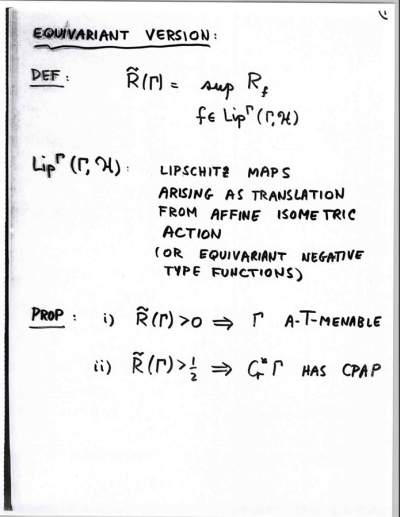 EQUIVARIANT VERSION:
DEF: R̃(Γ) = sup R_f
f ∈ Lip^Γ(Γ, ℋ)
Lip^Γ(Γ, ℋ): LIPSCHITZ MAPS
ARISING AS TRANSLATION
FROM AFFINE ISOMETRIC
ACTION
(OR EQUIVARIANT NEGATIVE
TYPE FUNCTIONS)
PROP: i) R̃(Γ) > 0 ⇒ Γ A-T-MENABLE
ii) R̃(Γ) > 1/2 ⇒ C*_r Γ HAS CPAP